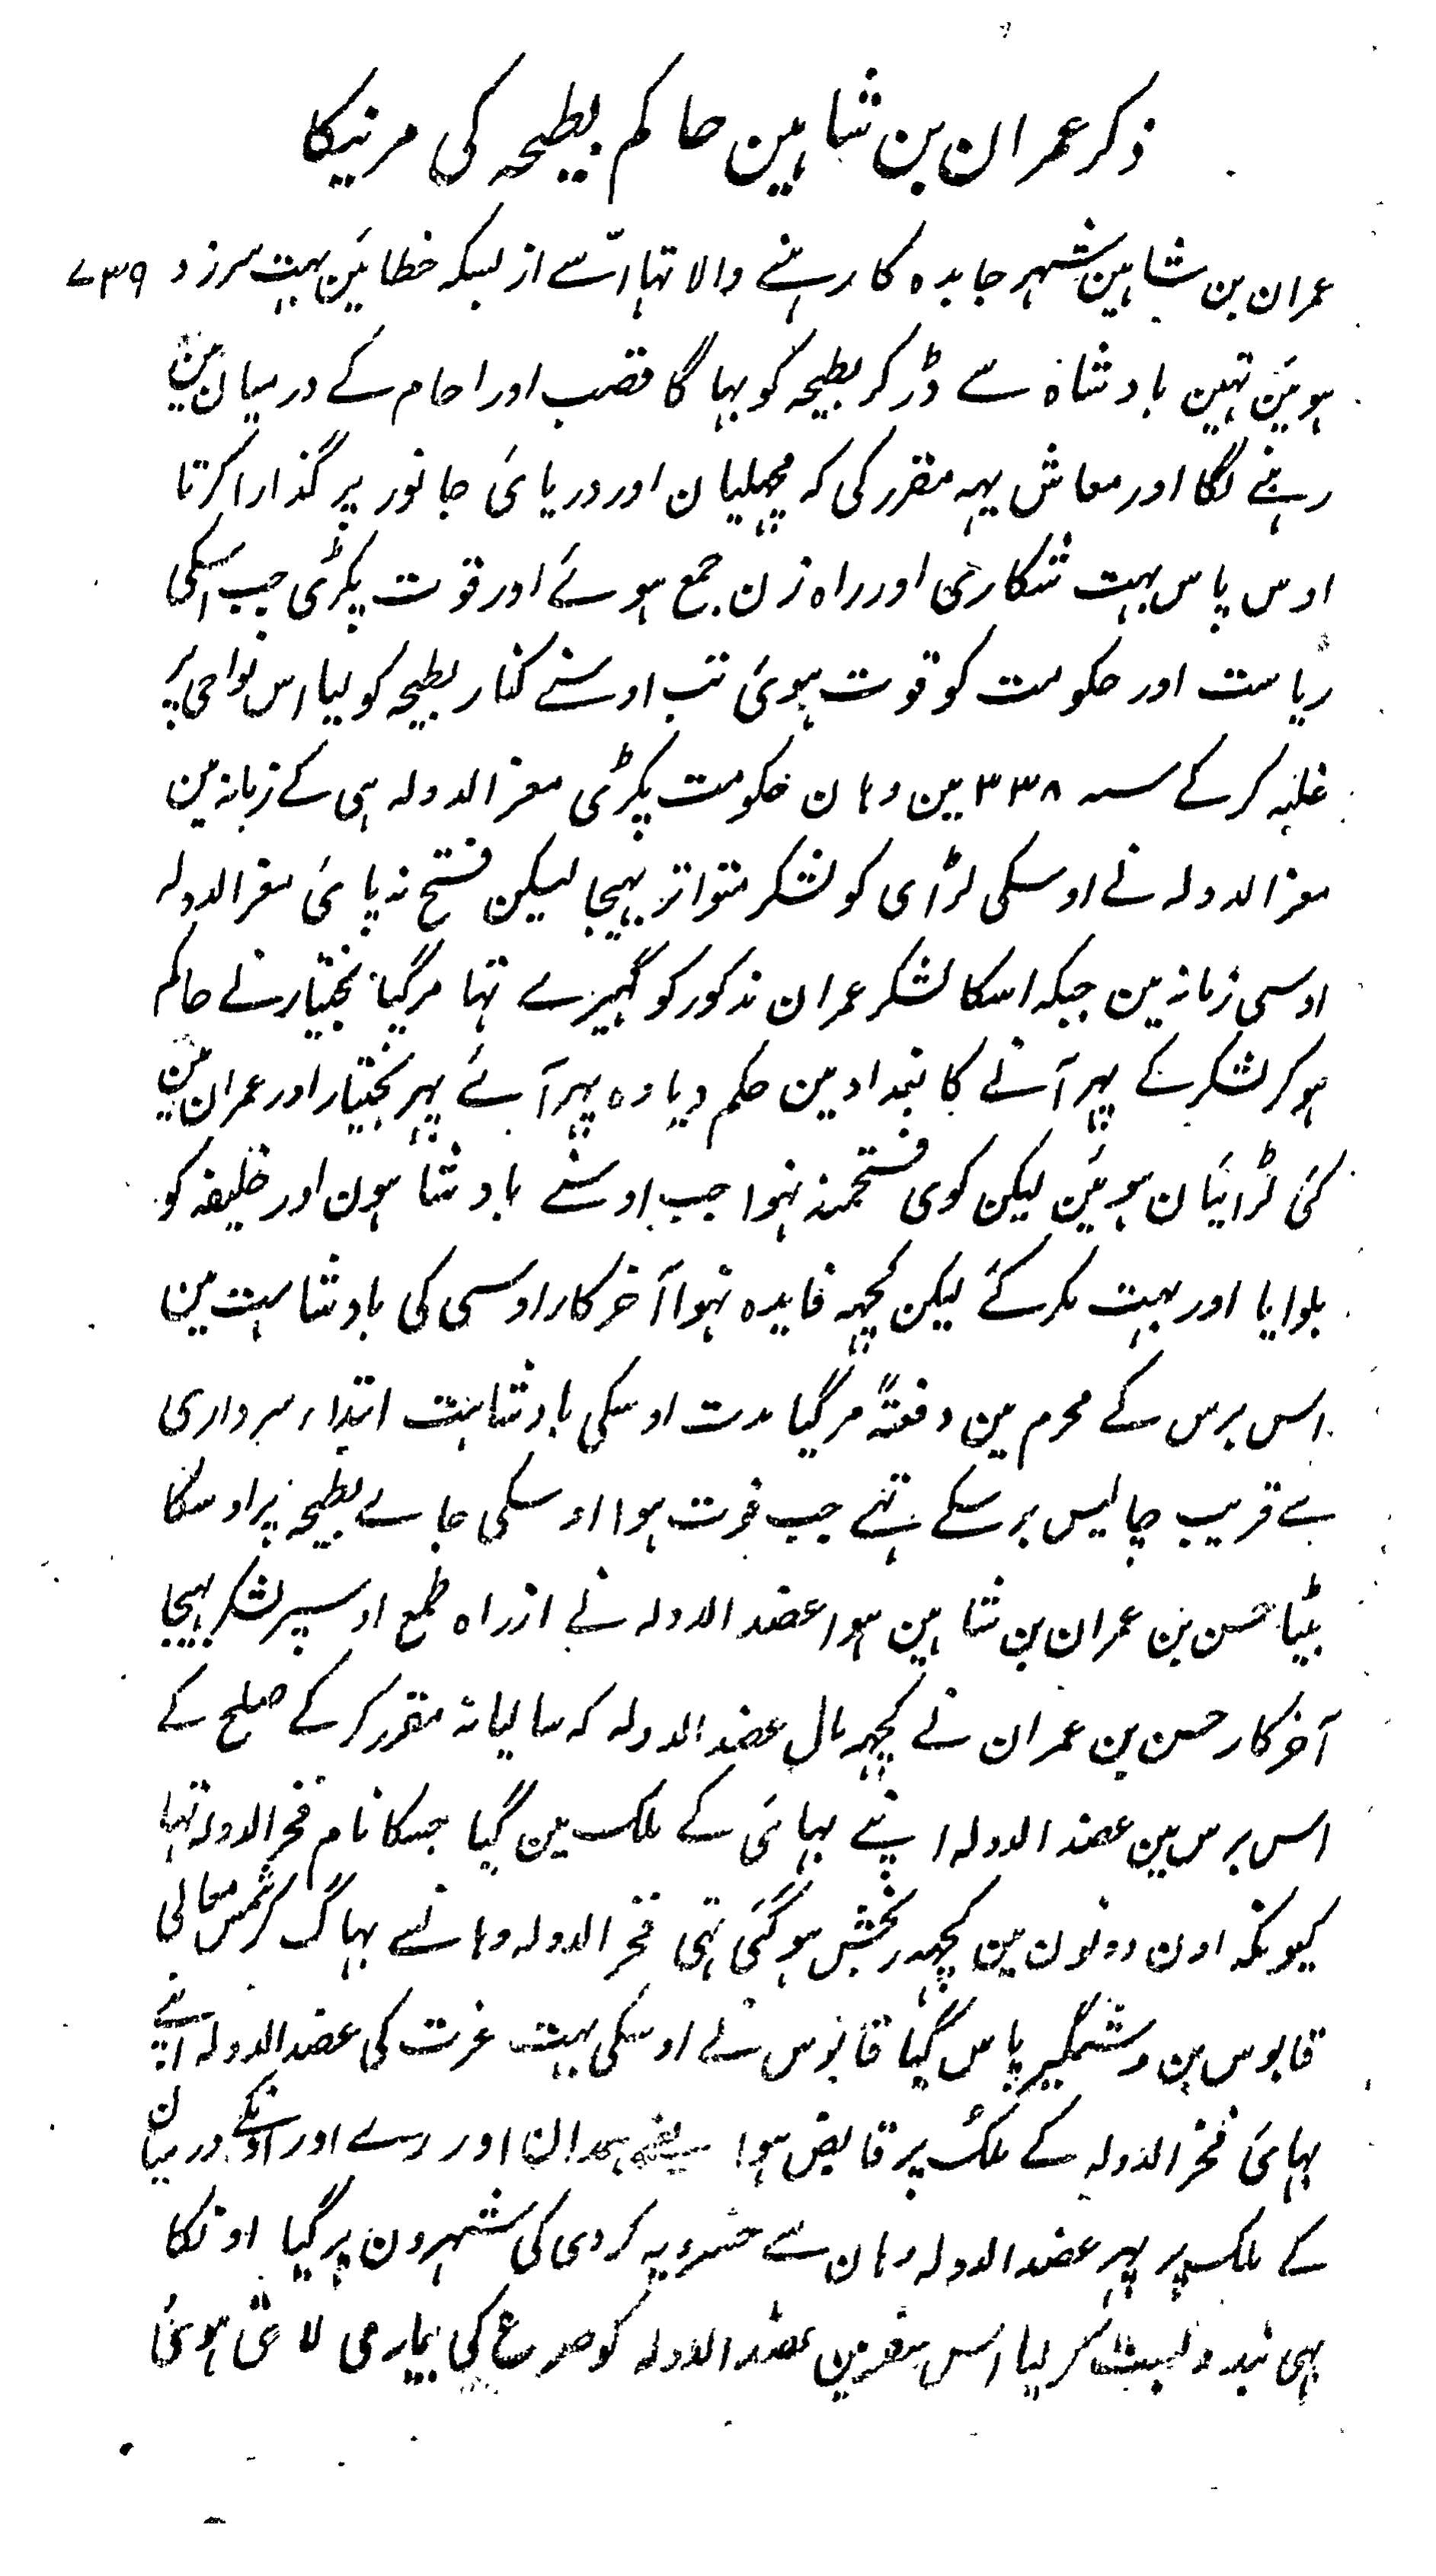 ذکر عمران بن شاہین حاکم بطیحہ کی مرنیکا
عمران بن شاہین شہر جابدہ کا رہنے والا تہا اسّے از بسکہ خطائین بہت سرزد ۷۳۹
ہوئین تہین بادشاہ سے ڈر کر بطیحہ کو بہاگا قصب اور احام کے درمیان مین
رہنے لگا اور معاش یہہ مقرر کی کہ مچہلیان اور دریائی جانور پر گذارا کرتا
اوس پاس بہت شکاری اور راہ زن جمع ہوئے اور قوت پکڑی جب اسکی
ریاست اور حکومت کو قوت ہوئی تب اوسنے کنار بطیحہ کو لیا اس نواحی پر
غلبہ کر کے سنہ ۳۳۸ مین وہان حکومت پکڑی معز الدولہ ہی کے زمانہ مین
معز الدولہ نے اوسکی لڑای کو لشکر متواتر بہیجا لیکن فتح نہ پائی معز الدولہ
اوسی زمانہ مین جبکہ اسکا لشکر عمران مذکور کو گہیرے تہا مر گیا بختیار نے حاکم
ہو کر لشکر کے پہر آنے کا بغداد مین حکم دیا وہ پہر آئے پہر بختیار اور عمران مین
کئی لڑائیان ہوئین لیکن کوی فتحمند نہوا جب اوسنے بادشاہون اور خلیفہ کو
بلوایا اور بہت مکر کئے لیکن کچہہ فایدہ نہوا آخر کار اوسی کی بادشاہت مین
اس برس کے محرم مین دفعتہً مر گیا مدت اوسکی بادشاہت ابتداء سرداری
سے قریب چالیس برسکے تہے جب فوت ہوا اوسکی جاے بطیحہ پر اوسکا
بیٹا حسن بن عمران بن شاہین ہوا عضد الدولہ نے ازراہ طمع اوسپر لشکر بہیجا
آخر کار حسن بن عمران نے کچہہ مال عضد الدولہ کہ سالیانہ مقرر کر کے صلح کے
اس برس مین عضد الدولہ اپنے بہائی کے ملک مین گیا جسکا نام فخر الدولہ تہا
کیونکہ اون دونون مین کچہہ رنجش ہو گئی تہی فخر الدولہ وہانسے بہاگ کر شمس معالی
قابوس بن وشمگیر پاس گیا قابوس نے اوسکی بہت عزت کی عضد الدولہ اپنے
بہائی فخر الدولہ کے ملک پر قابض ہوا یعنے ہمدان اور رے اور اونکے درمیان
کے ملک پر پہر عضد الدولہ وہان سے حسرویہ کردی کی شہرون پر گیا اونکا
بہی بندوبست کر لیا اس سفر مین عضد الدولہ کو صرع کی بیماری لاحق ہوئی